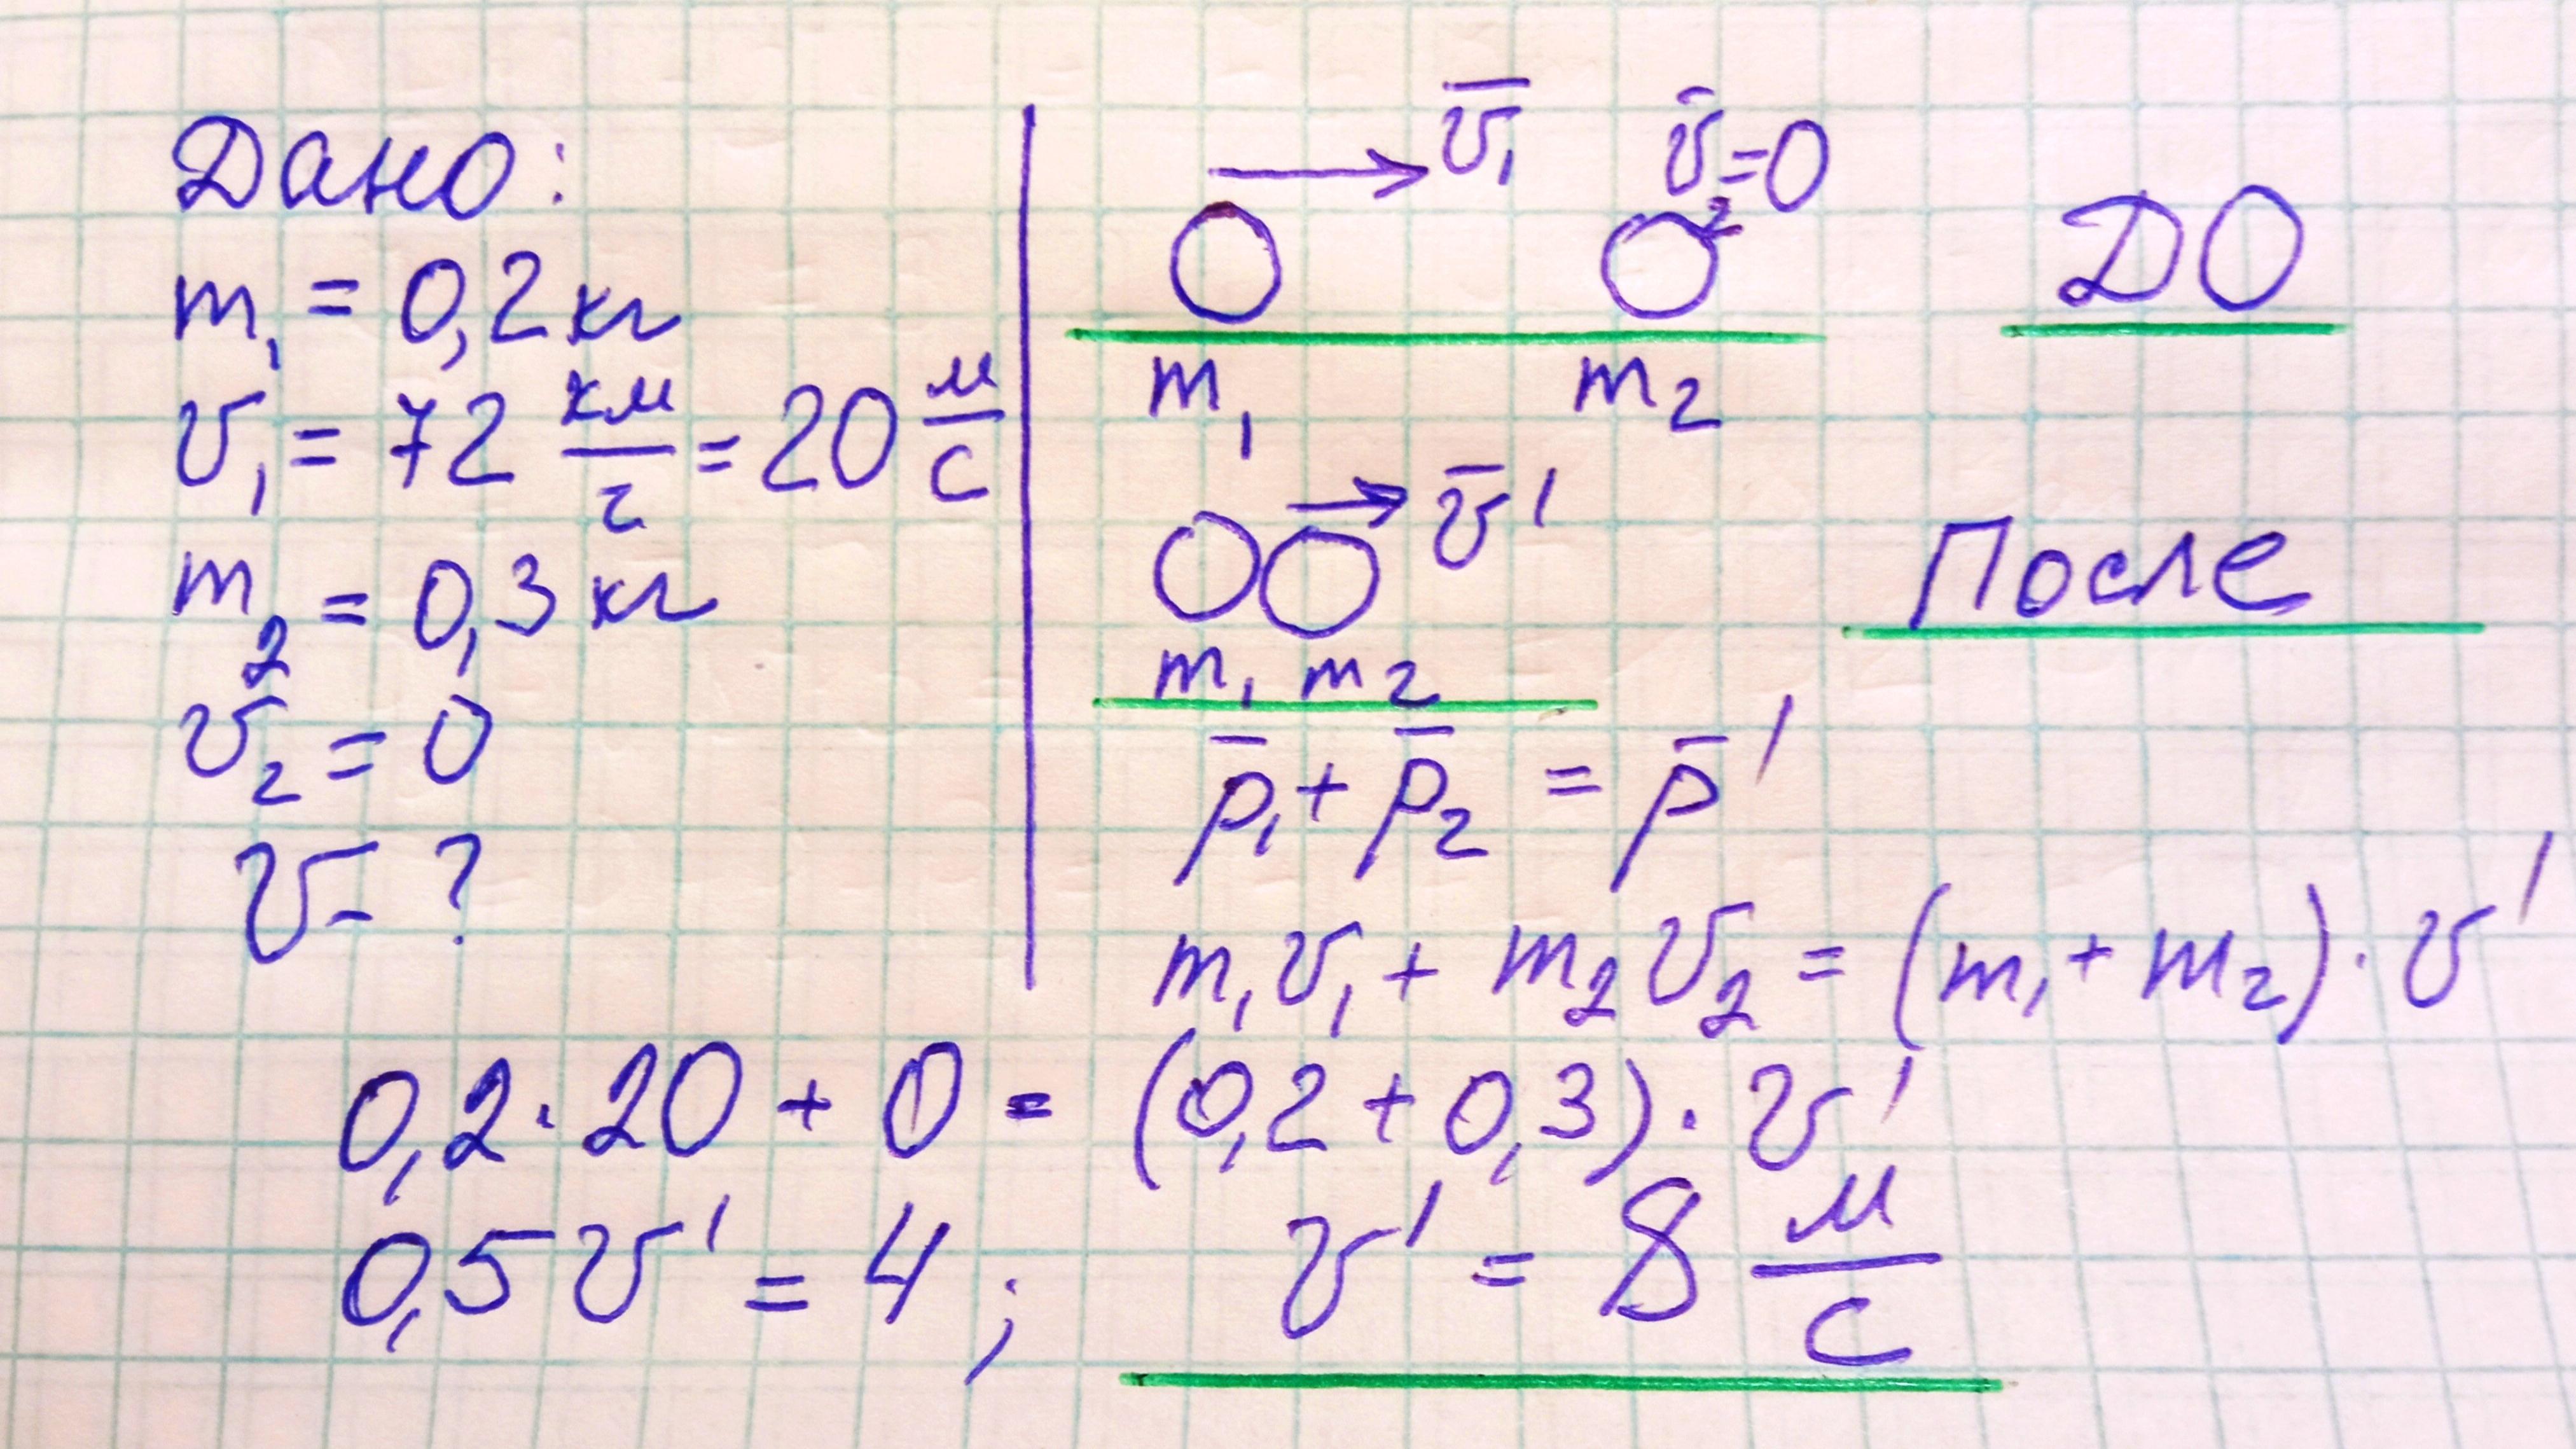 Дано:
m₁ = 0,2 кг
υ₁ = 72 км/г = 20 м/с
m₂ = 0,3 кг
υ₂ = 0
υ - ?
υ̅₁ υ̅₂=0 ДО
m₁ m₂
υ̅' После
m₁ m₂
p̅₁ + p̅₂ = p̅'
m₁υ₁ + m₂υ₂ = (m₁ + m₂) · υ'
0,2 · 20 + 0 = (0,2 + 0,3) · υ'
0,5υ' = 4 ; υ' = 8 м/с